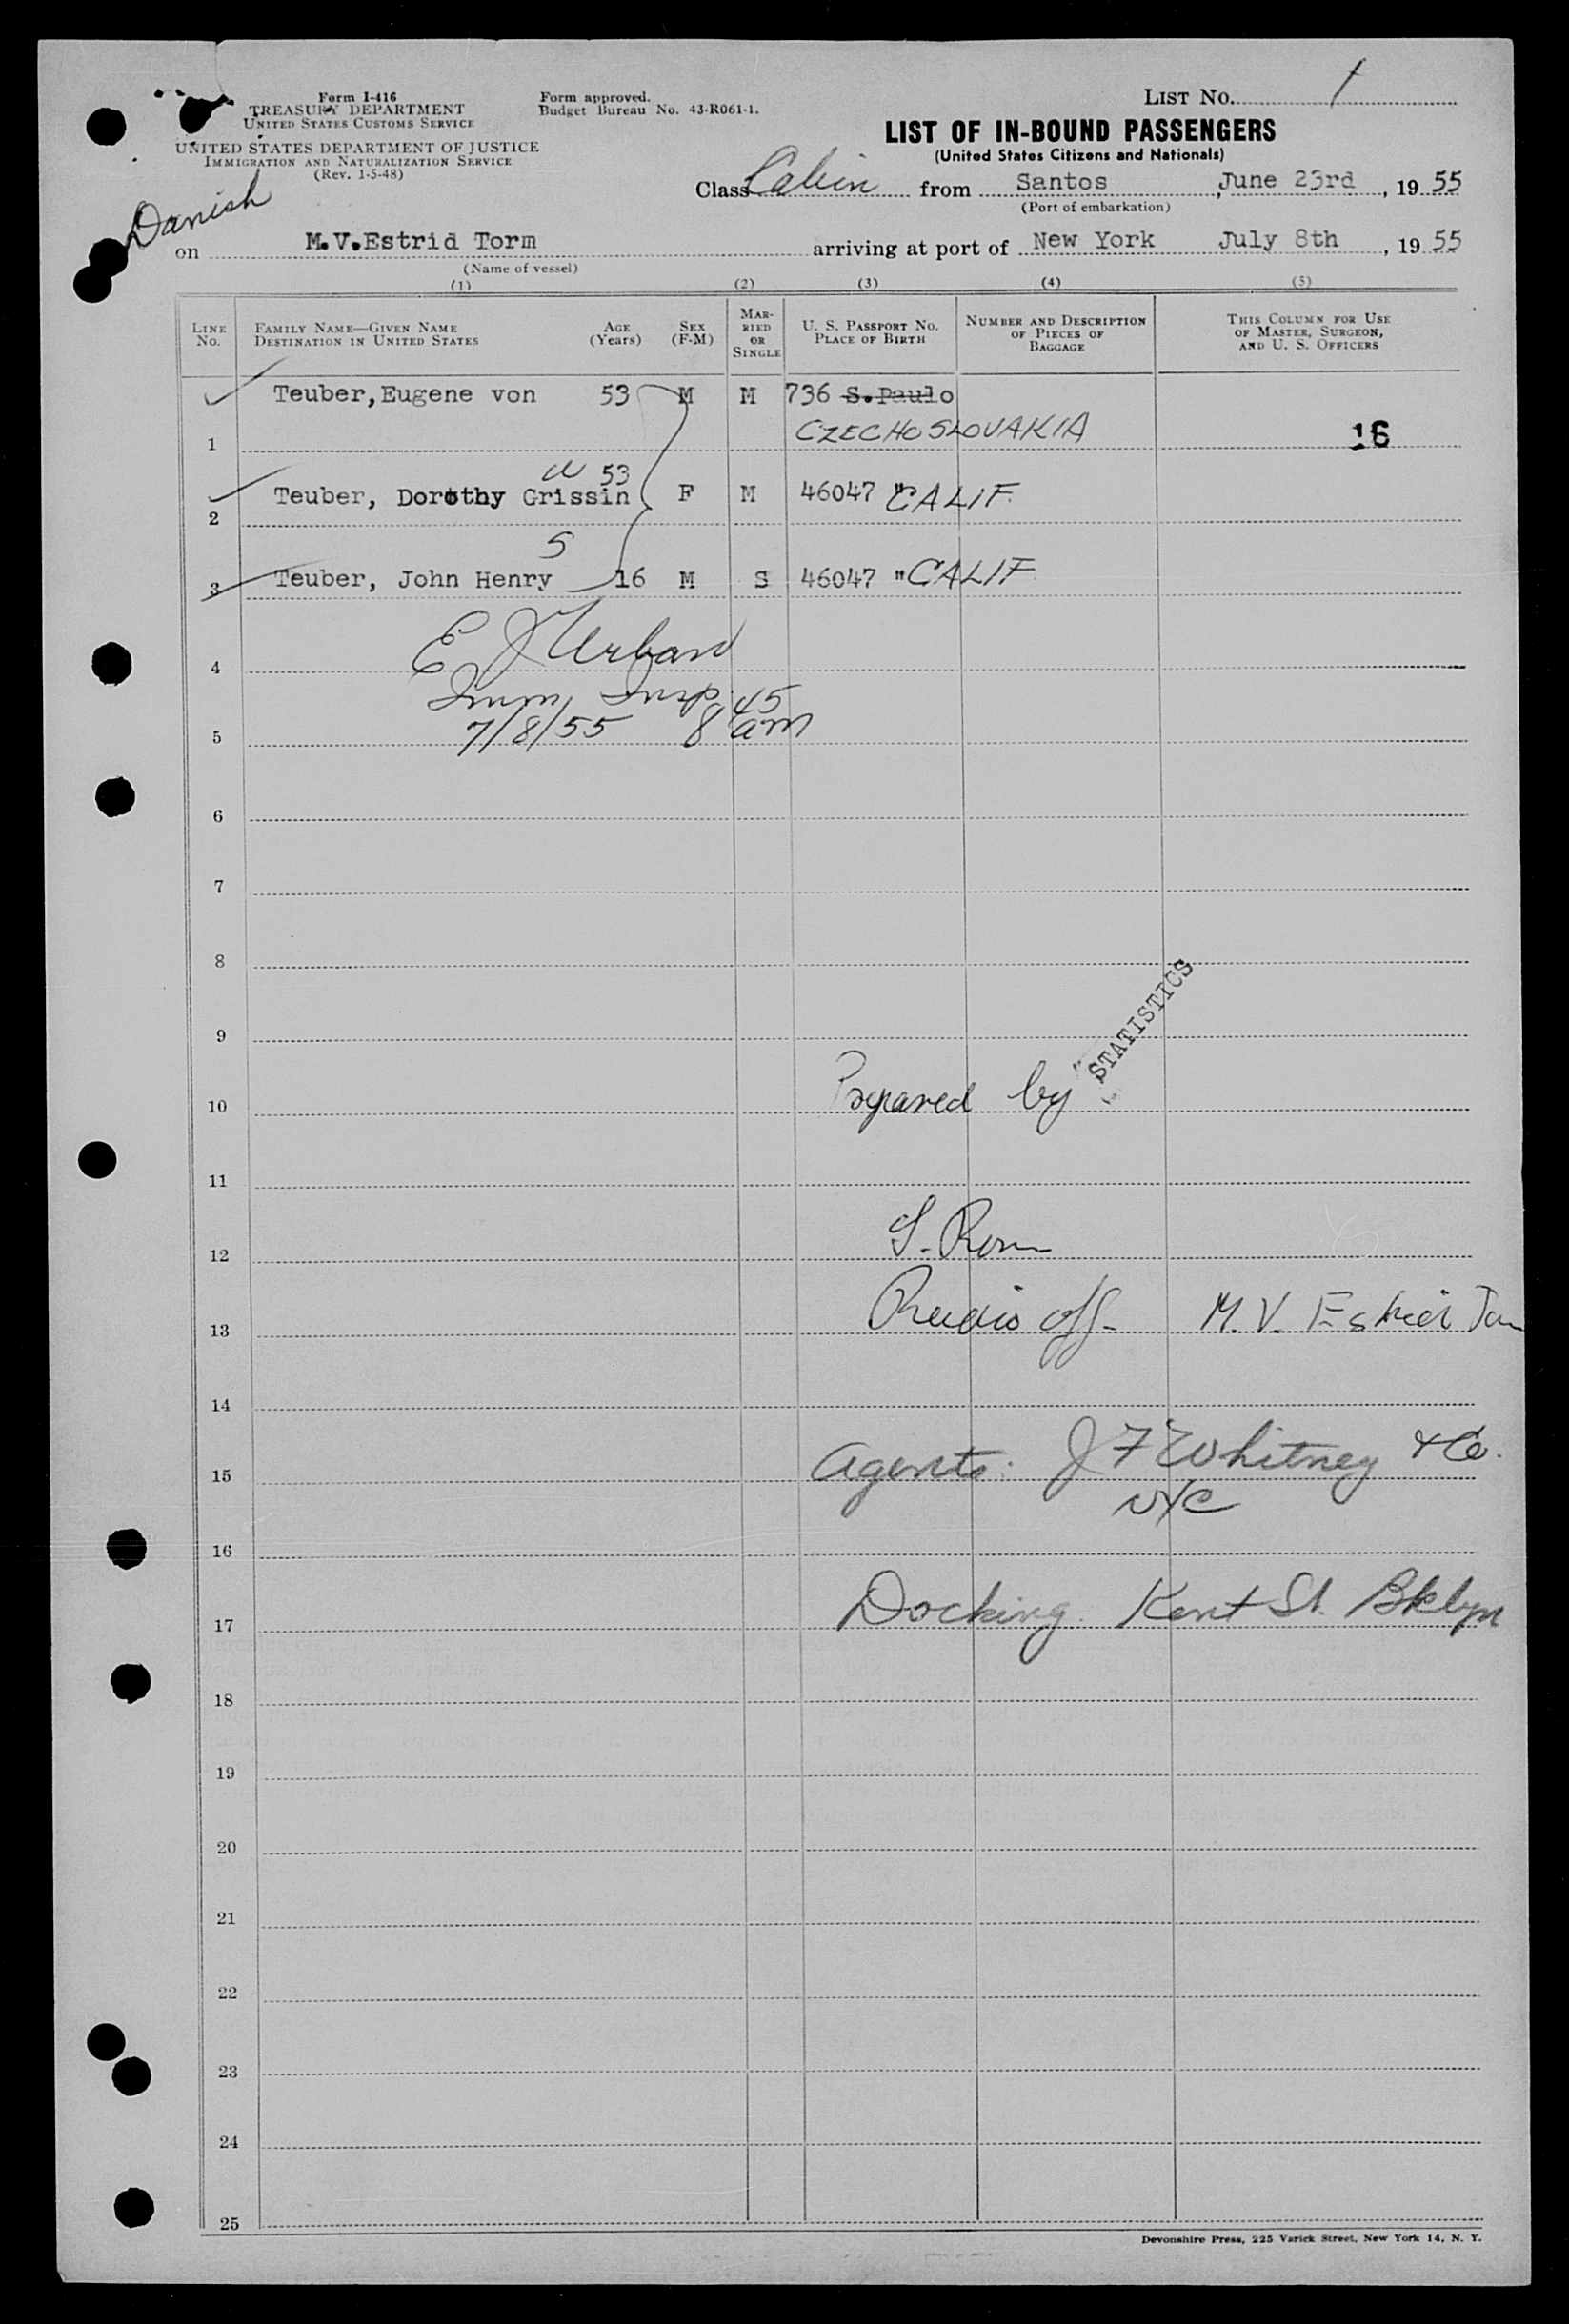 Form I-416
TREASURY DEPARTMENT
UNITED STATES CUSTOMS SERVICE
UNITED STATES DEPARTMENT OF JUSTICE
IMMIGRATION AND NATURALIZATION SERVICE
(Rev. 1-5-48)
Form approved.
Budget Bureau No. 43-R061-1.
LIST No. 1
LIST OF IN-BOUND PASSENGERS
(United States Citizens and Nationals)
Class Cabin from Santos, June 23rd, 1955
(Port of embarkation)
Danish
on M.V.Estrid Torm arriving at port of New York July 8th, 1955
(Name of vessel)
(1) (2) (3) (4) (5)
LINE No. FAMILY NAME—GIVEN NAME DESTINATION IN UNITED STATES AGE (Years) SEX (F-M) MARRIED OR SINGLE U. S. PASSPORT No. PLACE OF BIRTH NUMBER AND DESCRIPTION OF PIECES OF BAGGAGE THIS COLUMN FOR USE OF MASTER, SURGEON, AND U. S. OFFICERS
Teuber, Eugene von 53 M M 736 S.Paulo
1 CZECHOSLOVAKIA 16
W 53
Teuber, Dorothy Grissin F M 46047 " CALIF.
2
S
3 Teuber, John Henry 16 M S 46047 " CALIF
E J Urban
4
Imm Insp.
5 7/8/55 8 45 am
6
7
8
STATISTICS
9
10 Prepared by
11
12 S. Rom
13 Radio off. M.V. Estrid Torm
14
15 Agents: J F Whitney & Co.
NYC
16
17 Docking. Kent St. Bklyn
18
19
20
21
22
23
24
25
Devonshire Press, 225 Varick Street, New York 14, N. Y.